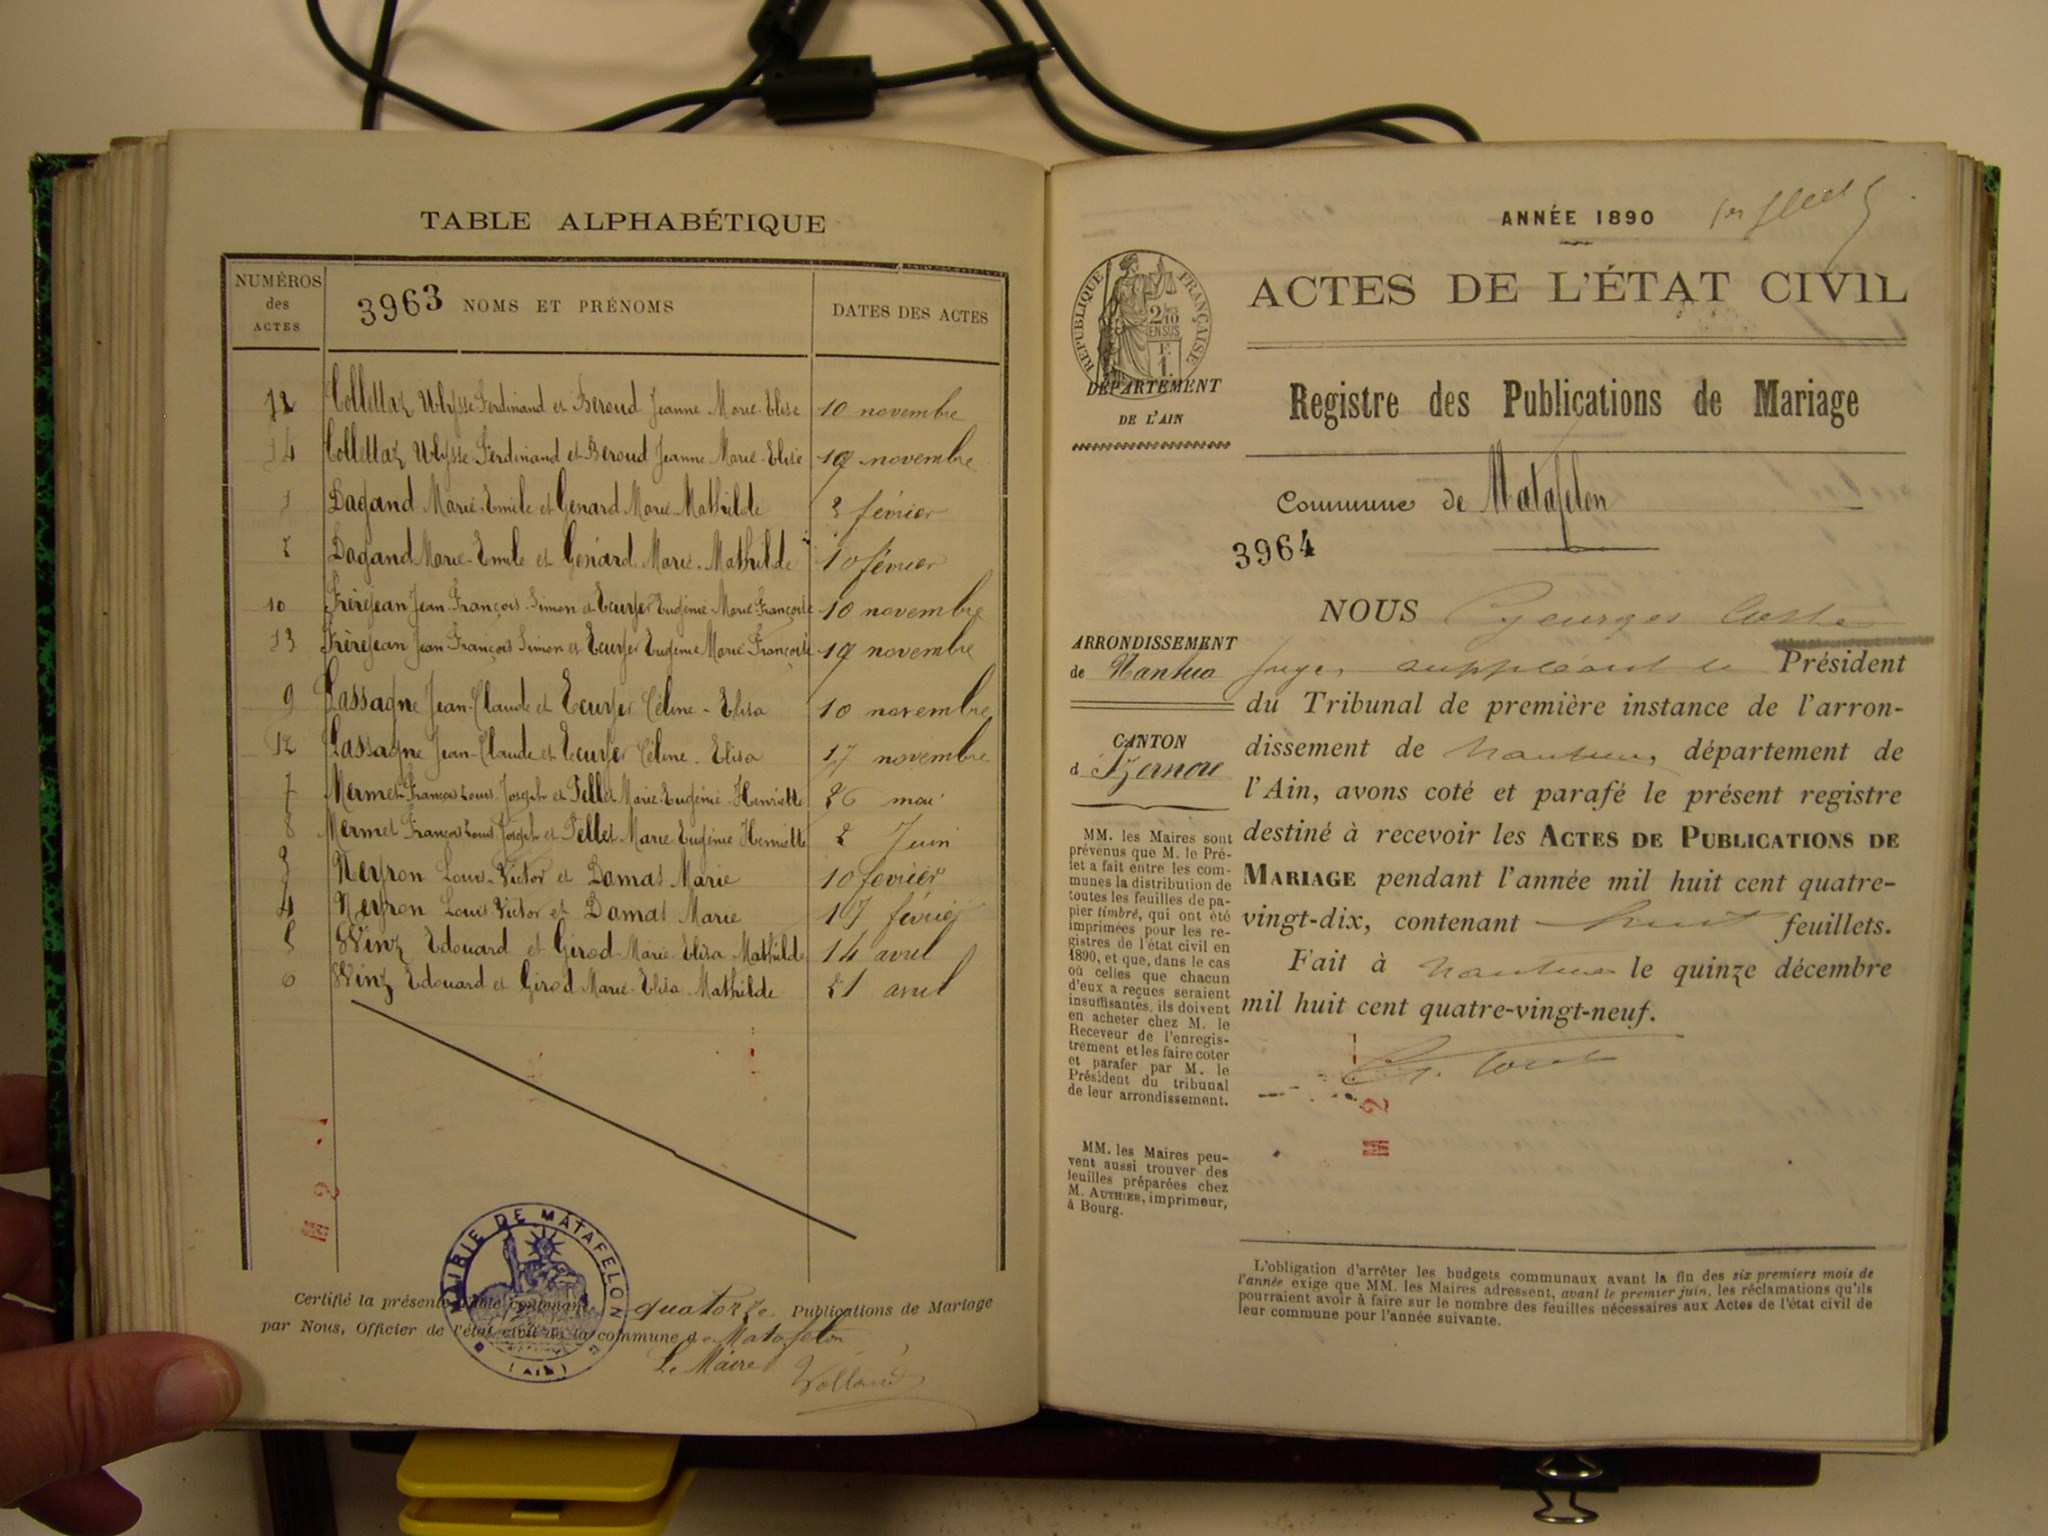 TABLE ALPHABÉTIQUE
NUMÉROS des ACTES
3963 NOMS ET PRÉNOMS
DATES DES ACTES
Collettaz Ulysse Ferdinand et Beroud Jeanne Marie Elise 10 novembre
14 Collettaz Ulysse Ferdinand et Beroud Jeanne Marie-Elise 19 novembre
1 Dagand Marie-Emile et Genard Marie-Mathilde 2 février
2 Dagand Marie-Emile et Genard Marie-Mathilde 10 février
10 Frèrejean Jean-François-Simon et Ecuyer Eugénie-Marie-Françoise 10 novembre
13 Frèrejean Jean-François Simon et Ecuyer Eugénie Marie Françoise 19 novembre
9 Lassagne Jean-Claude et Ecuyer Céline-Elisa 10 novembre
12 Lassagne Jean-Claude et Ecuyer Céline-Elisa 17 novembre
7 Mermet François Louis Joseph et Pellet Marie-Eugénie-Henriette 26 mai
8 Mermet François Louis Joseph et Pellet Marie Eugénie Henriette 2 Juin
3 Neyron Louis-Victor et Damas Marie 10 février
4 Neyron Louis Victor et Damas Marie 17 février
5 Winz Edouard et Girod Marie-Elisa Mathilde 14 avril
6 Winz Edouard et Girod Marie-Elisa-Mathilde 21 avril
MAIRIE DE MATAFELON
(AIN)
Certifié la présente table contenant quatorze Publications de Mariage
par Nous, Officier de l'état civil de la commune de Matafelon
Le Maire
ANNÉE 1890
RÉPUBLIQUE FRANÇAISE
2/10
EN SUS
F
1.
ACTES DE L'ÉTAT CIVIL
DÉPARTEMENT
DE L'AIN
Registre des Publications de Mariage
Commune de Matafelon
3964
NOUS Georges
ARRONDISSEMENT
de Nantua
CANTON
d'Izernore
juge suppléant le Président
du Tribunal de première instance de l'arron-
dissement de Nantua, département de
l'Ain, avons coté et parafé le présent registre
destiné à recevoir les ACTES DE PUBLICATIONS DE
MARIAGE pendant l'année mil huit cent quatre-
vingt-dix, contenant huit feuillets.
Fait à Nantua le quinze décembre
mil huit cent quatre-vingt-neuf.
MM. les Maires sont
prévenus que M. le Pré-
fet a fait entre les com-
munes la distribution de
toutes les feuilles de pa-
pier timbré, qui ont été
imprimées pour les re-
gistres de l'état civil en
1890, et que, dans le cas
où celles que chacun
d'eux a reçues seraient
insuffisantes, ils doivent
en acheter chez M. le
Receveur de l'enregis-
trement et les faire coter
et parafer par M. le
Président du tribunal
de leur arrondissement.
MM. les Maires peu-
vent aussi trouver des
feuilles préparées chez
M. AUTHIER, imprimeur,
à Bourg.
L'obligation d'arrêter les budgets communaux avant la fin des six premiers mois de
l'année exige que MM. les Maires adressent, avant le premier juin, les réclamations qu'ils
pourraient avoir à faire sur le nombre des feuilles nécessaires aux Actes de l'état civil de
leur commune pour l'année suivante.